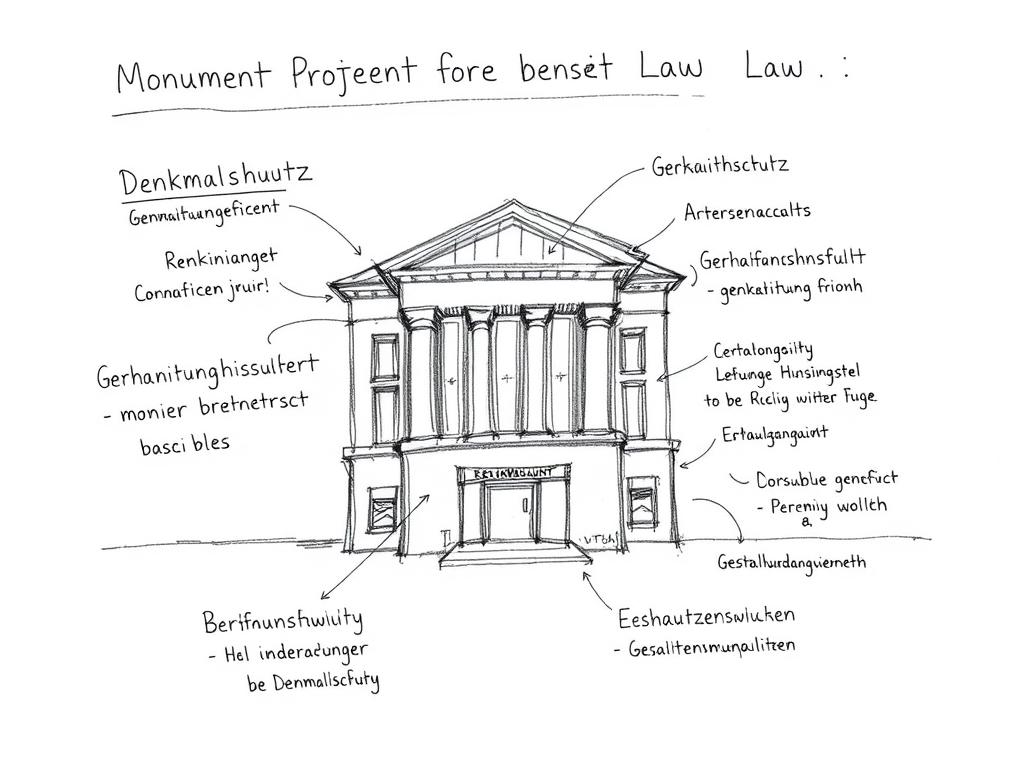 Monument Projeent fore bensët Law Law . :
Denkmalshuutz
Gennaitaungeficent
Renkinianget
Connaficen jruir!
Gerhanitunghissultert
- monier bretnetrsct
basci bles
Gerkaiithsctutz
Artersenaccalts
Gerhalfancshnsfullt
- genkatitung frionh
Certalongsiity
Lefunge Hinsingstel
to be Ricliy witter Fuge
Ertaulgangaint
Corsublue genefuct
- Pereniy wollth
a.
Gestalhurdangvierneth
Berifnunsfwiuity
- Hel inderadunger
be Denmallscfuty
Eeshautzenswluken
- Gesalltensmunpaliteen